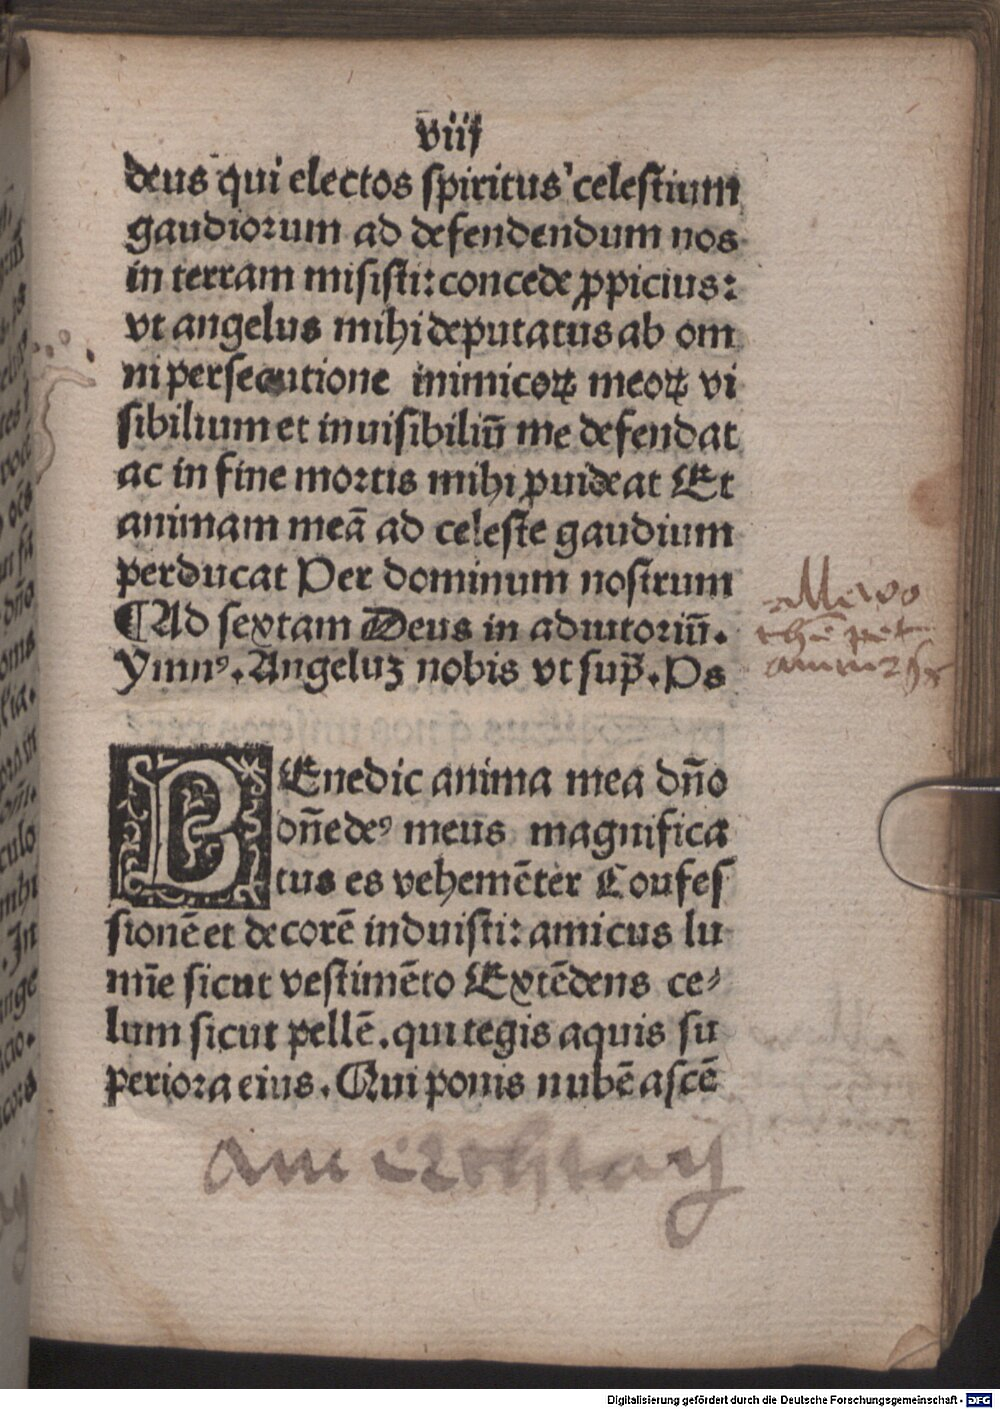 viij
deus qui electos ſpiritus celeſtium
gaudiorum ad defendendum nos
in terram miſiſti: concede ꝓpicius:
vt angelus mihi deputatus ab om
ni perſecutione inimicoꝝ meoꝝ vi
ſibilium et inuiſibiliū me defendat
ac in fine mortis mihi ꝓuideat Et
animam meā ad celeſte gaudium
perducat Per dominum noſtrum
¶Ad ſextam Deus in adiutoriū.
Ymnꝰ. Angeluʒ nobis vt ſup̄. Ps
BEnedic anima mea dn̄o
dn̄e deꝰ meus magnifica
tus es vehemēter Confeſ
ſionē et decorē induiſti: amictus lu
mīe ſicut veſtimēto Extēdens ce⸗
lum ſicut pellē. qui tegis aquis ſu
periora eius. Qui ponis nubē aſcē
Digitalisierung gefördert durch die Deutsche Forschungsgemeinschaft - DFG